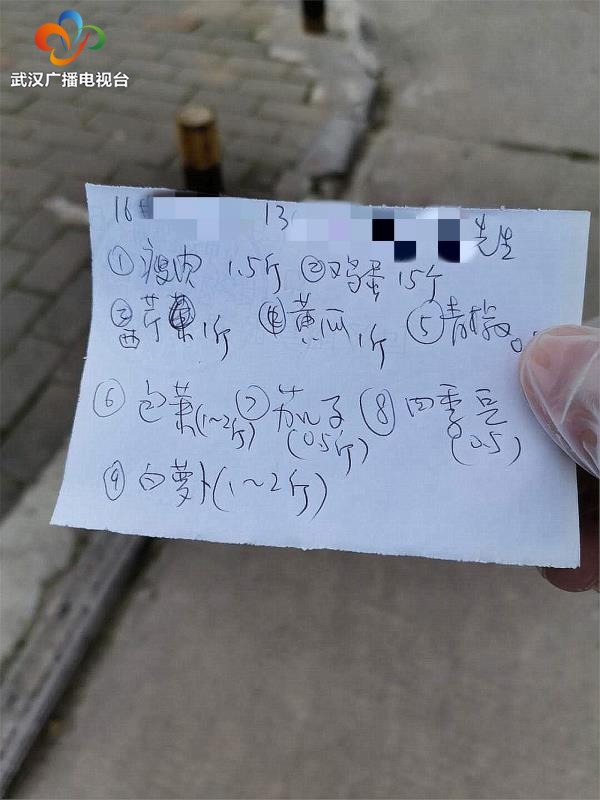 武汉广播电视台
16 13 先生
①瘦肉 1.5斤 ②鸡蛋 1.5斤
③西芹 1斤 ④黄瓜 1斤 ⑤青椒 0.
⑥包菜(1~2斤) ⑦茄子(0.5斤) ⑧四季豆(0.5)
⑨白萝卜(1~2斤)